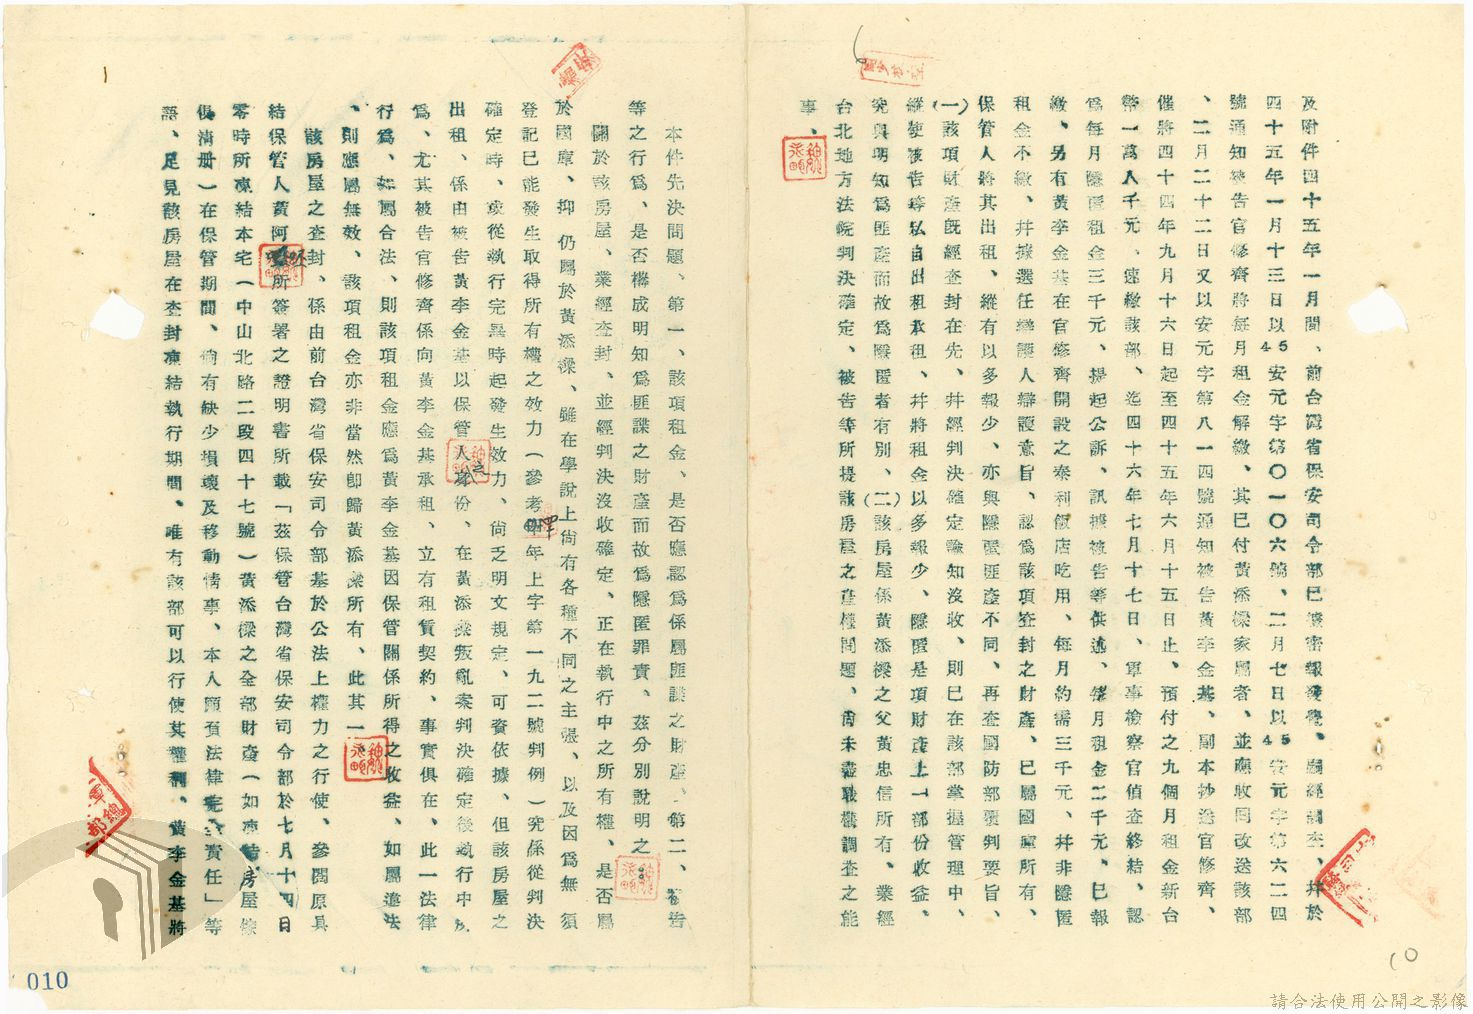 及附件四十五年一月間、前台灣省保安司令部已據密報發覺、嗣經調查、幷於
四十五年一月十三日以45安元字第〇一〇六號、二月七日以45安元字第六二四
號通知被告官修齊將每月租金解繳、其已付黃添樑家屬者、並應收回改送該部
、二月二十二日又以安元字第八一四號通知被告黃李金基、副本抄送官修齊、
催將四十四年九月十六日起至四十五年六月十五日止、預付之九個月租金新台
幣一萬八千元、速繳該部、迄四十六年七月十七日、軍事檢察官偵查終結、認
爲每月隱匿租金三千元、提起公訴、訊據被告等供述、每月租金二千元、已報
繳、另有黃李金基在官修齊開設之泰利飯店吃用、每月約需三千元、幷非隱匿
租金不繳、幷據選任辯護人辯護意旨、認爲該項查封之財產、已屬國庫所有、
保管人將其出租、縱有以多報少、亦與隱匿匪產不同、再查國防部覆判要旨、
(一)該項財產既經查封在先、幷經判決確定諭知沒收、則已在該部掌握管理中、
縱使被告等私自出租承租、幷將租金以多報少、隱匿是項財產上一部份收益、
究與明知爲匪產而故爲隱匿者有別、(二)該房屋係黃添樑之父黃忠信所有、業經
台北地方法院判決確定、被告等所提該房屋之產權問題、尚未盡職權調查之能
事、
本件先決問題、第一、該項租金、是否應認爲係屬匪諜之財產、第二、被告
等之行爲、是否構成明知爲匪諜之財產而故爲隱匿罪責、茲分別說明之
關於該房屋、業經查封、並經判決沒收確定、正在執行中之所有權、是否屬
於國庫、抑仍屬於黃添樑、雖在學說上尚有各種不同之主張、以及因爲無須
登記已能發生取得所有權之效力(參考四年上字第一九二號判例)究係從判決
確定時、或從執行完畢時起發生效力、尚乏明文規定、可資依據、但該房屋之
出租、係由被告黃李金基以保管人之身份、在黃添樑叛亂案判決確定後執行中所
爲、尤其被告官修齊係向黃李金基承租、立有租賃契約、事實俱在、此一法律
行爲、如屬合法、則該項租金應爲黃李金基因保管關係所得之收益、如屬違法
、則應屬無效、該項租金亦非當然卽歸黃添樑所有、此其一
該房屋之查封、係由前台灣省保安司令部基於公法上權力之行使、參閱原具
結保管人黃阿 所簽署之證明書所載「茲保管台灣省保安司令部於七月十四日
零時所凍結本宅(中山北路二段四十七號)黃添樑之全部財產(如凍結房屋傢
俱清册)在保管期間、倘有缺少損壞及移動情事、本人願負法律完全責任」等
語、足見該房屋在查封凍結執行期間、唯有該部可以行使其權利、黃李金基將
010
10
請合法使用公開之影像